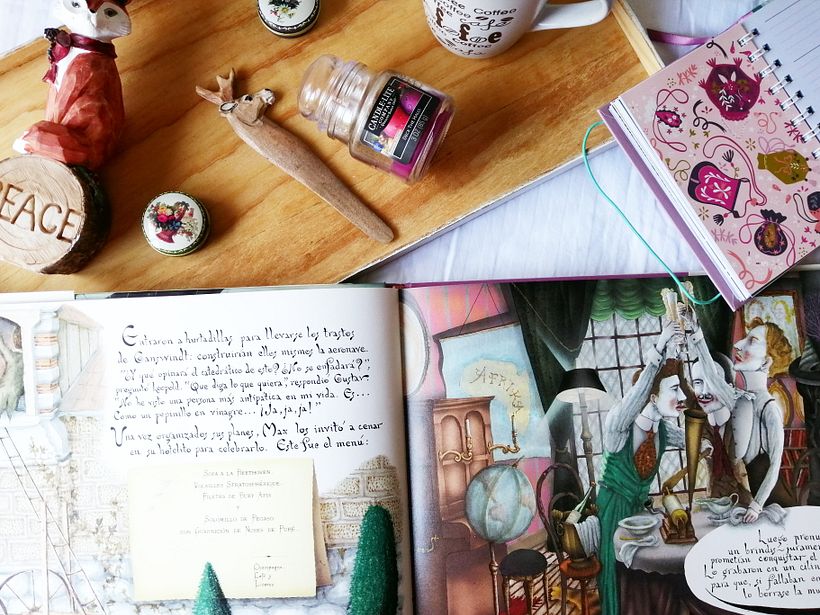 Coffee
Coffee
PEACE
CANDLE-LITE
COMPANY
3 OZ (85 g)
Entraron a hurtadillas para llevarse los trastos
de Ganswindt: construirían ellos mismos la aeronave.
"¿Y qué opinará el catedrático de esto? ¿No se enfadará?",
preguntó Leopold. "Que diga lo que quiera", respondió Gustav.
"No he visto una persona más antipática en mi vida. Es...
Como un pepinillo en vinagre... ¡Ja, ja, ja!"
Una vez organizados sus planes, Max los invitó a cenar
en su hotelito para celebrarlo. Este fue el menú:
SOPA A LA BEETHOVEN
VOLADILLOS ESTRATOSFÉRICOS
Y
SOLOMILLO DE PEGASO
CON GUARNICIÓN DE NUBES DE PURÉ
CAFÉ Y
AFRIKA
Luego
un brindis-juramen
prometían conquistar el
Lo grabaron en un cilin
para que, si fallaban en
lo borrase la mu